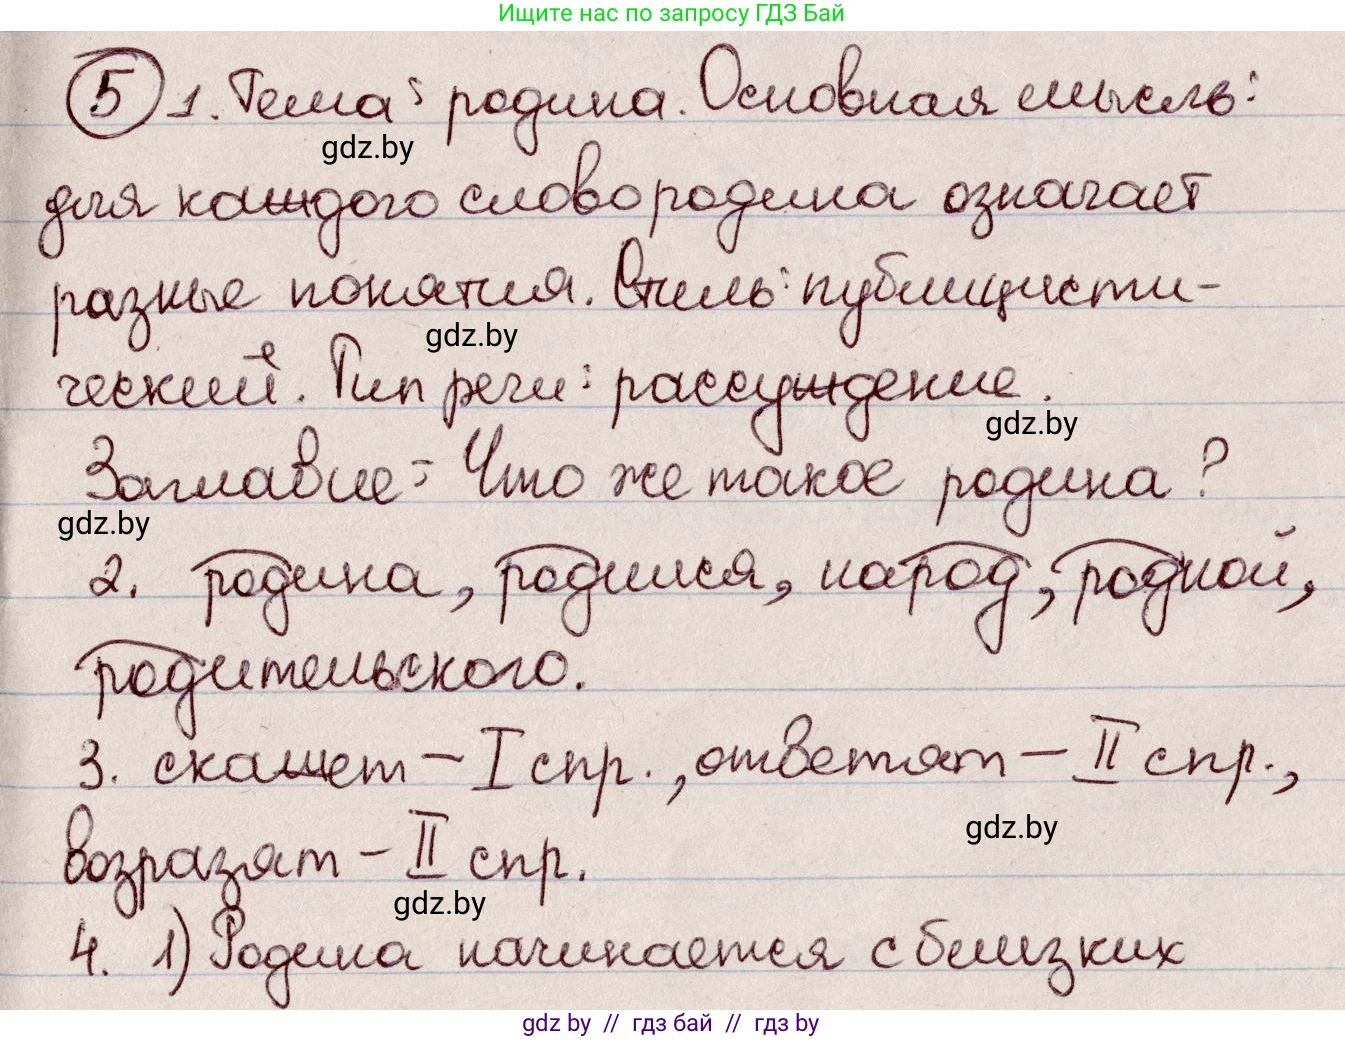 Ищите нас по запросу ГДЗ Бай
5 1. Тема: родина. Основная мысль:
gdz.by
для каждого слово родина означает
разные понятия. Стиль: публицисти-
gdz.by
ческий. Тип речи: рассуждение.
gdz.by
Заглавие: Что же такое родина?
gdz.by
2. родина, родился, народ, родной,
родительского.
3. скажет – I спр., ответят – II спр.,
gdz.by
возразят – II спр.
gdz.by
4. 1) Родина начинается с близких
gdz by // гдз бай // гдз by